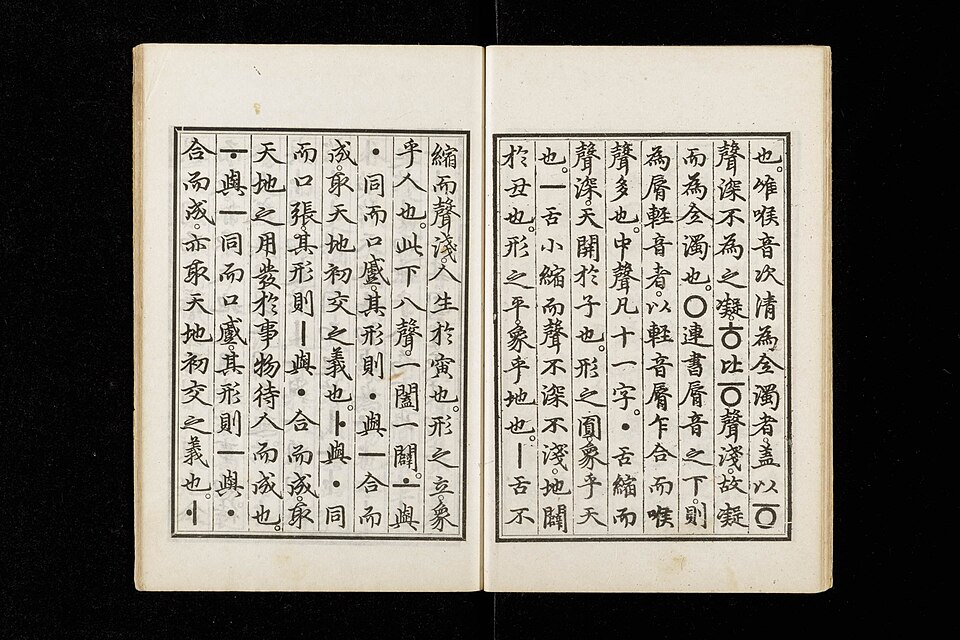 也。唯喉音次清為全濁者。盖以ㆆ
聲深不為之凝。ㅎ比ㆆ聲淺。故凝
而為全濁也。ㅇ連書脣音之下。則
為脣輕音者。以輕音脣乍合而喉
聲多也。中聲凡十一字。ㆍ舌縮而
聲深。天開於子也。形之圓。象乎天
也。ㅡ舌小縮而聲不深不淺。地闢
於丑也。形之平。象乎地也。ㅣ舌不
縮而聲淺。人生於寅也。形之立。象
乎人也。此下八聲。一闔一闢。ㅗ與
ㆍ同而口蹙。其形則ㆍ與ㅡ合而
成。取天地初交之義也。ㅏ與ㆍ同
而口張。其形則ㅣ與ㆍ合而成。取
天地之用發於事物待人而成也。
ㅜ與ㅡ同而口蹙。其形則ㅡ與ㆍ
合而成。亦取天地初交之義也。ㅓ